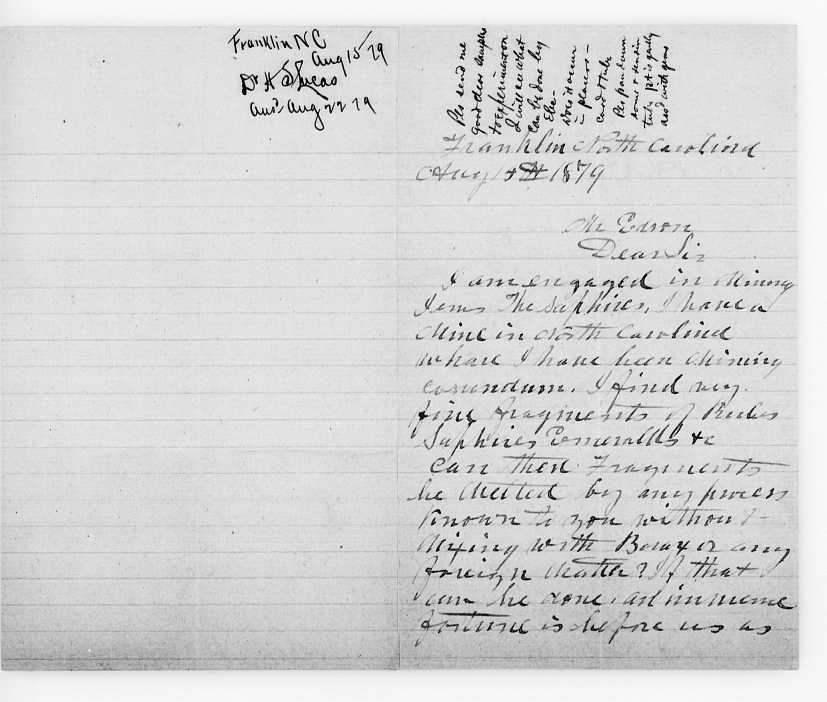 Franklin NC
Aug 15/79
Dr H S Lucas
Ansd Aug 22 79
Pls send me
good clear samples
to experiment on
I will see what
can be done by
Elec-
Does it occur
in placers—
Franklin North Carolina
Aug 1879
Mr Edson
Dear Sir
I am engaged in Mining
Jems The Saphires, I have a
Mine in North Carolina
whare I have been Mining
corundum. I find very
fine fragments of Rubes
Saphires Esmeralds &c
Can thes Fragments
be Melted by any proces
known to you without
Mixing with Borax or any
foreign Matter? If that
can be done, an immence
fortune is before us as